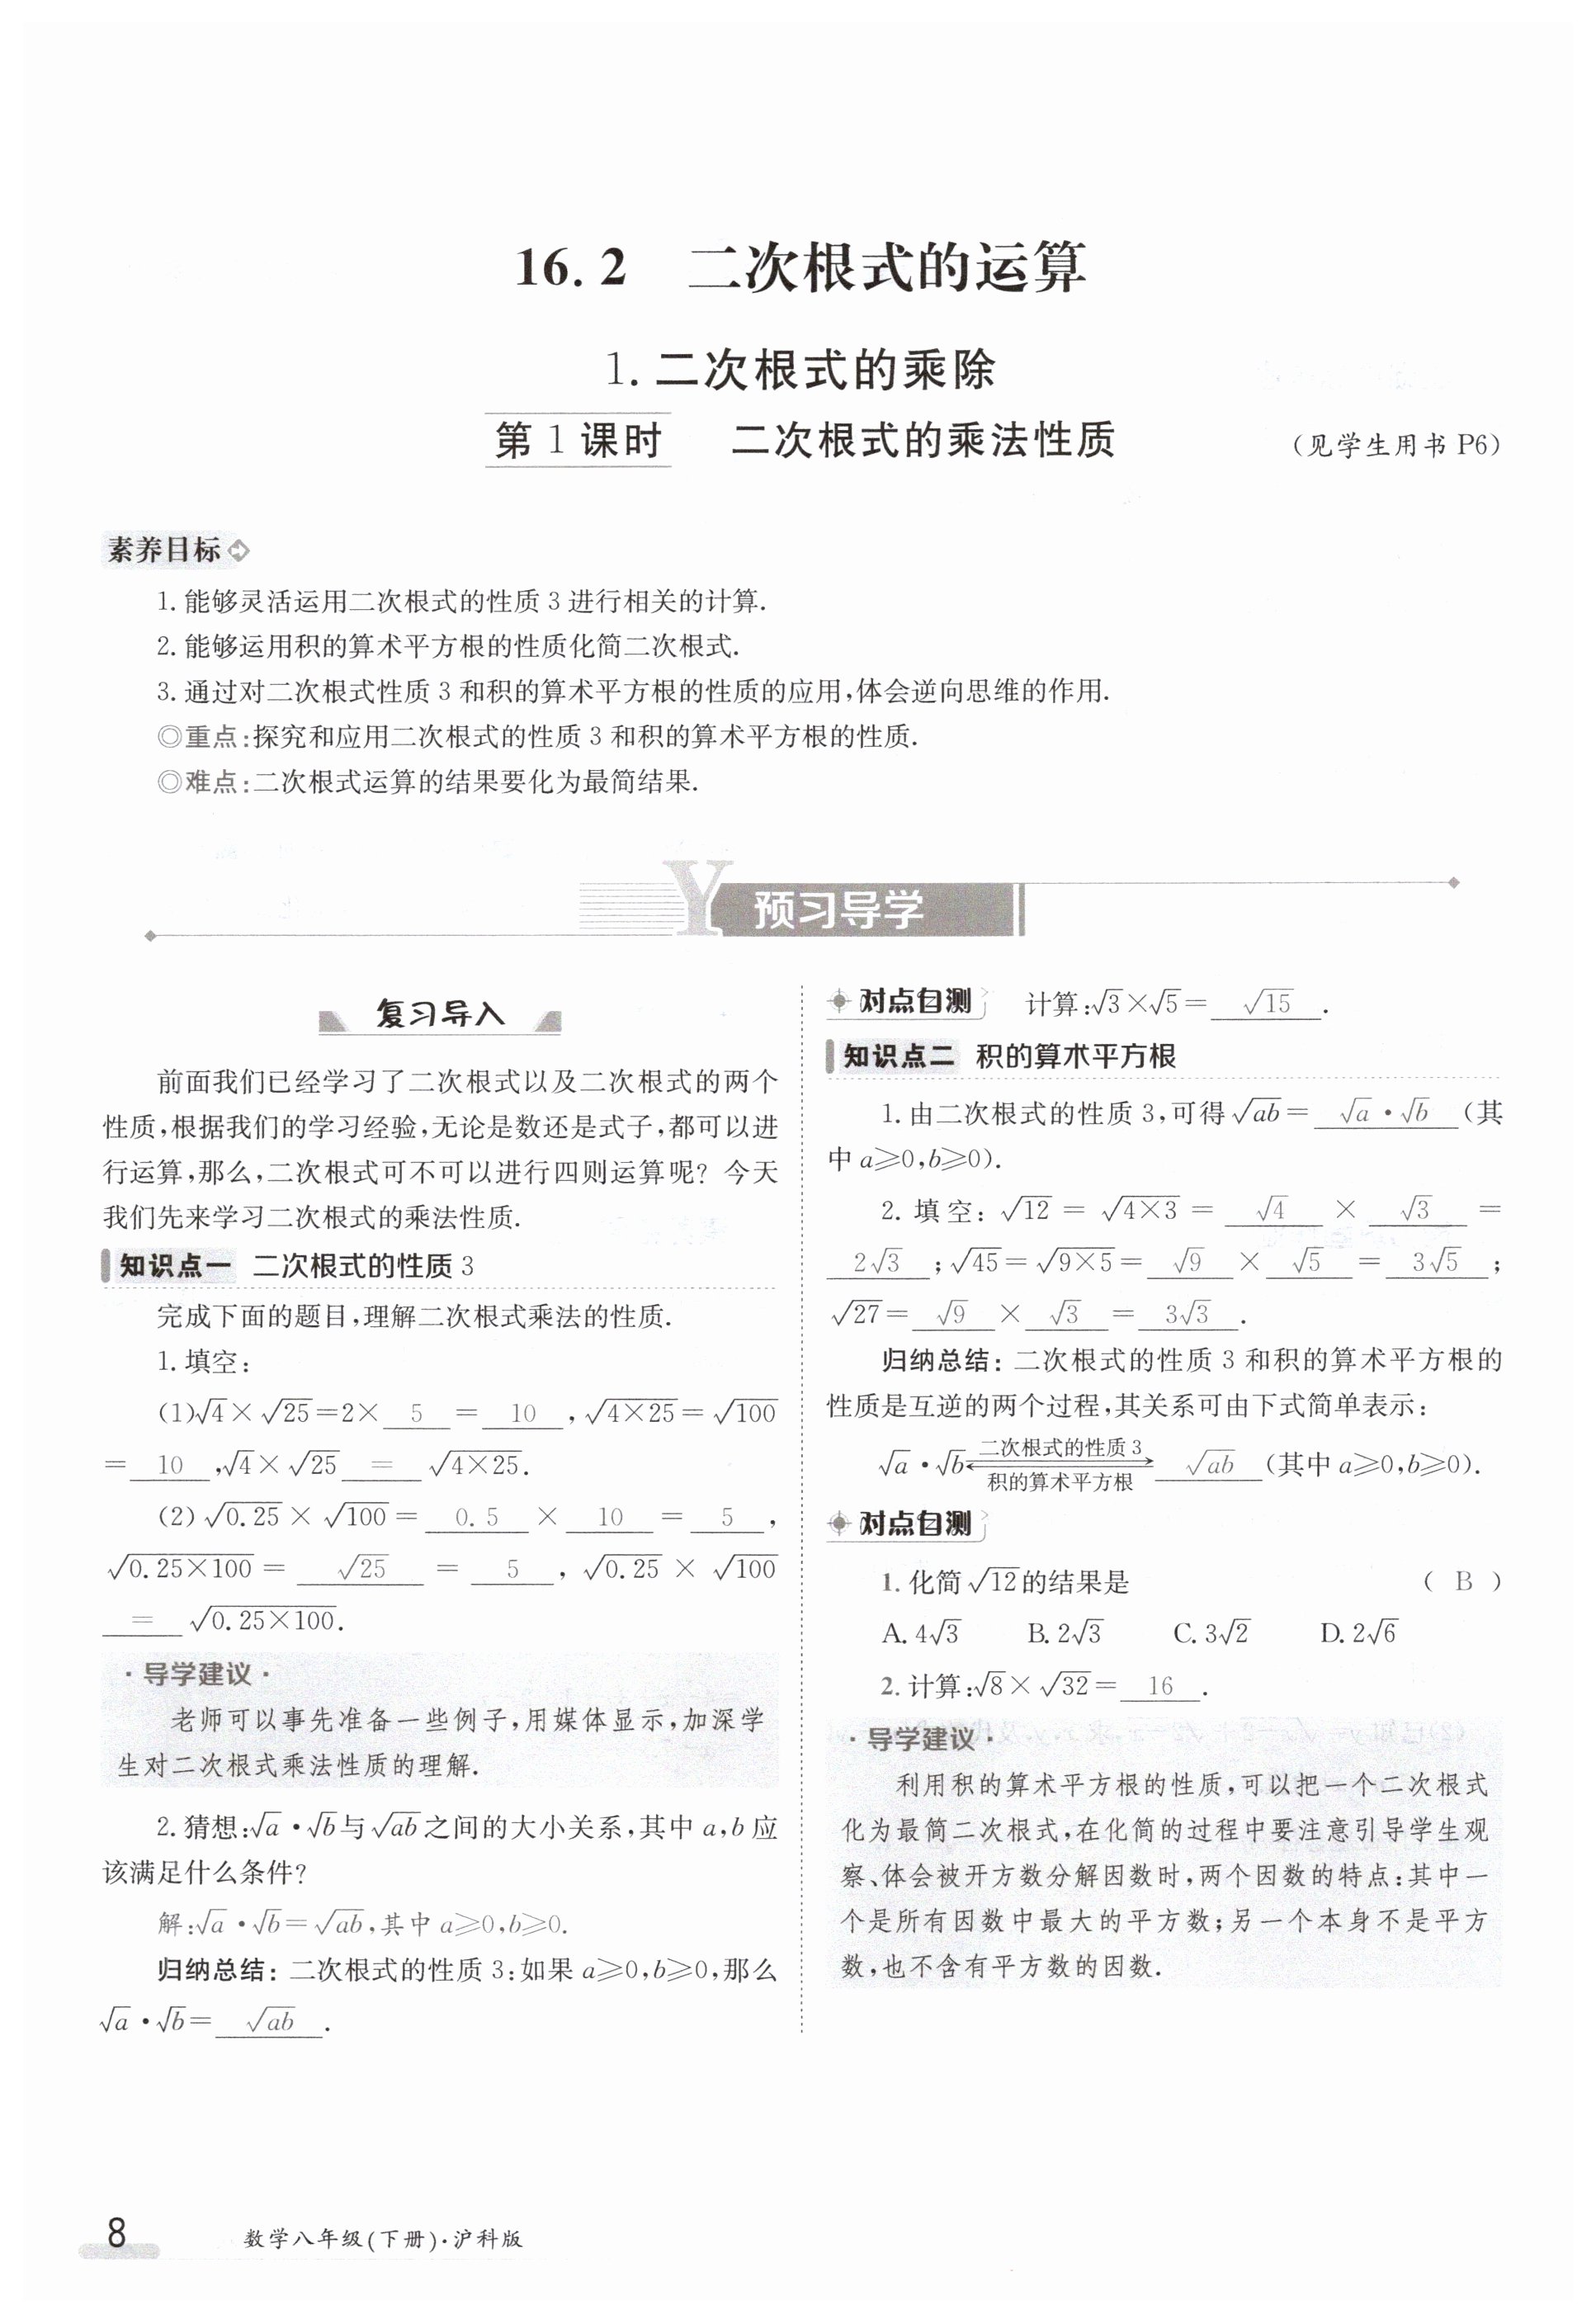 16.2 二次根式的运算
1.二次根式的乘除
第1课时 二次根式的乘法性质 (见学生用书P6)
素养目标
1.能够灵活运用二次根式的性质3进行相关的计算.
2.能够运用积的算术平方根的性质化简二次根式.
3.通过对二次根式性质3和积的算术平方根的性质的应用,体会逆向思维的作用.
◎重点:探究和应用二次根式的性质3和积的算术平方根的性质.
◎难点:二次根式运算的结果要化为最简结果.
Y 预习导学
复习导入
前面我们已经学习了二次根式以及二次根式的两个
性质,根据我们的学习经验,无论是数还是式子,都可以进
行运算,那么,二次根式可不可以进行四则运算呢?今天
我们先来学习二次根式的乘法性质.
知识点一 二次根式的性质3
完成下面的题目,理解二次根式乘法的性质.
1.填空:
(1)√4×√25=2× 5 = 10 ,√4×25=√100
= 10 ,√4×√25 = √4×25.
(2)√0.25×√100= 0.5 × 10 = 5 ,
√0.25×100= √25 = 5 ,√0.25×√100
= √0.25×100.
·导学建议·
老师可以事先准备一些例子,用媒体显示,加深学
生对二次根式乘法性质的理解.
2.猜想:√a·√b与√ab之间的大小关系,其中a,b应
该满足什么条件?
解:√a·√b=√ab,其中a≥0,b≥0.
归纳总结:二次根式的性质3:如果a≥0,b≥0,那么
√a·√b= √ab .
对点自测 计算:√3×√5= √15 .
知识点二 积的算术平方根
1.由二次根式的性质3,可得√ab= √a·√b (其
中a≥0,b≥0).
2.填空:√12=√4×3= √4 × √3 =
2√3 ;√45=√9×5= √9 × √5 = 3√5 ;
√27= √9 × √3 = 3√3 .
归纳总结:二次根式的性质3和积的算术平方根的
性质是互逆的两个过程,其关系可由下式简单表示:
二次根式的性质3
√a·√b⇄ √ab (其中a≥0,b≥0).
积的算术平方根
对点自测
1.化简√12的结果是 ( B )
A.4√3 B.2√3 C.3√2 D.2√6
2.计算:√8×√32= 16 .
·导学建议·
利用积的算术平方根的性质,可以把一个二次根式
化为最简二次根式,在化简的过程中要注意引导学生观
察、体会被开方数分解因数时,两个因数的特点:其中一
个是所有因数中最大的平方数;另一个本身不是平方
数,也不含有平方数的因数.
8 数学八年级(下册)·沪科版